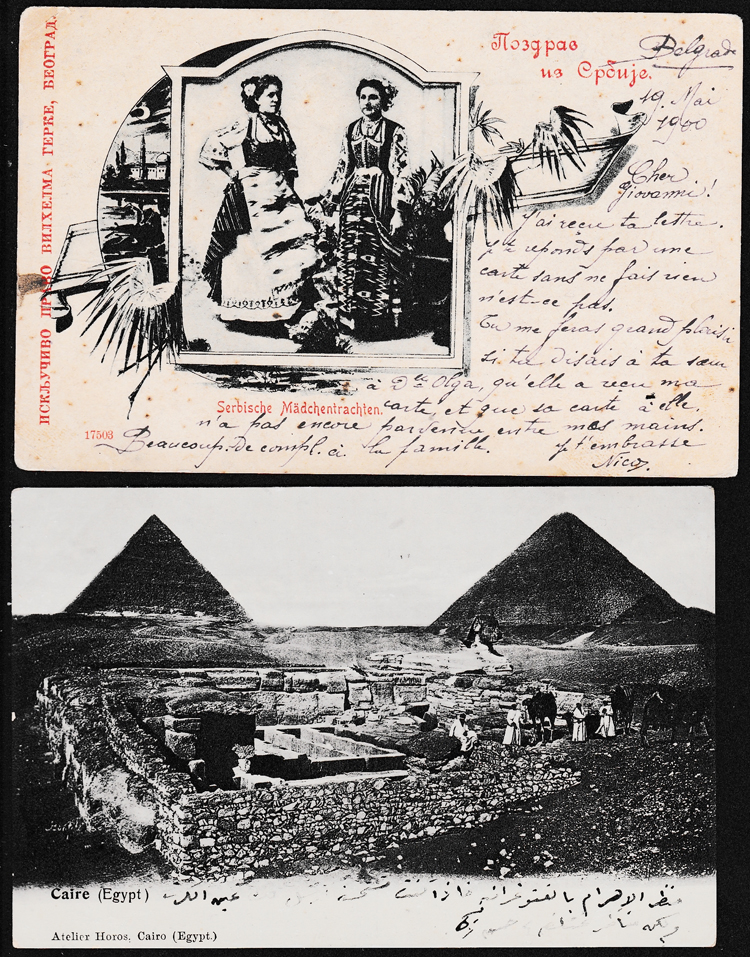 ИСКЉУЧИВО ПРАВО ВИЛХЕЛМА ГЕРКЕ, БЕОГРАД.
Поздрав
из Србије.
Belgrade
19. Mai
1900
Cher
Giovanni!
J'ai reçu ta lettre.
je te reponds par une
carte sans ne fais rien
n'est-ce pas.
Tu me feras grand plaisi
si tu disais à ta sœur
à Dlle Olga, qu'elle a recu ma
carte, et que sa carte à elle.
n'a pas encore parvenue entre mes mains.
Beaucoup. de compl. à la famille. je t'embrasse
Nico.
Serbische Mädchentrachten.
17503
Caire (Egypt)
منظر الاهرام
Atelier Horos, Cairo (Egypt.)